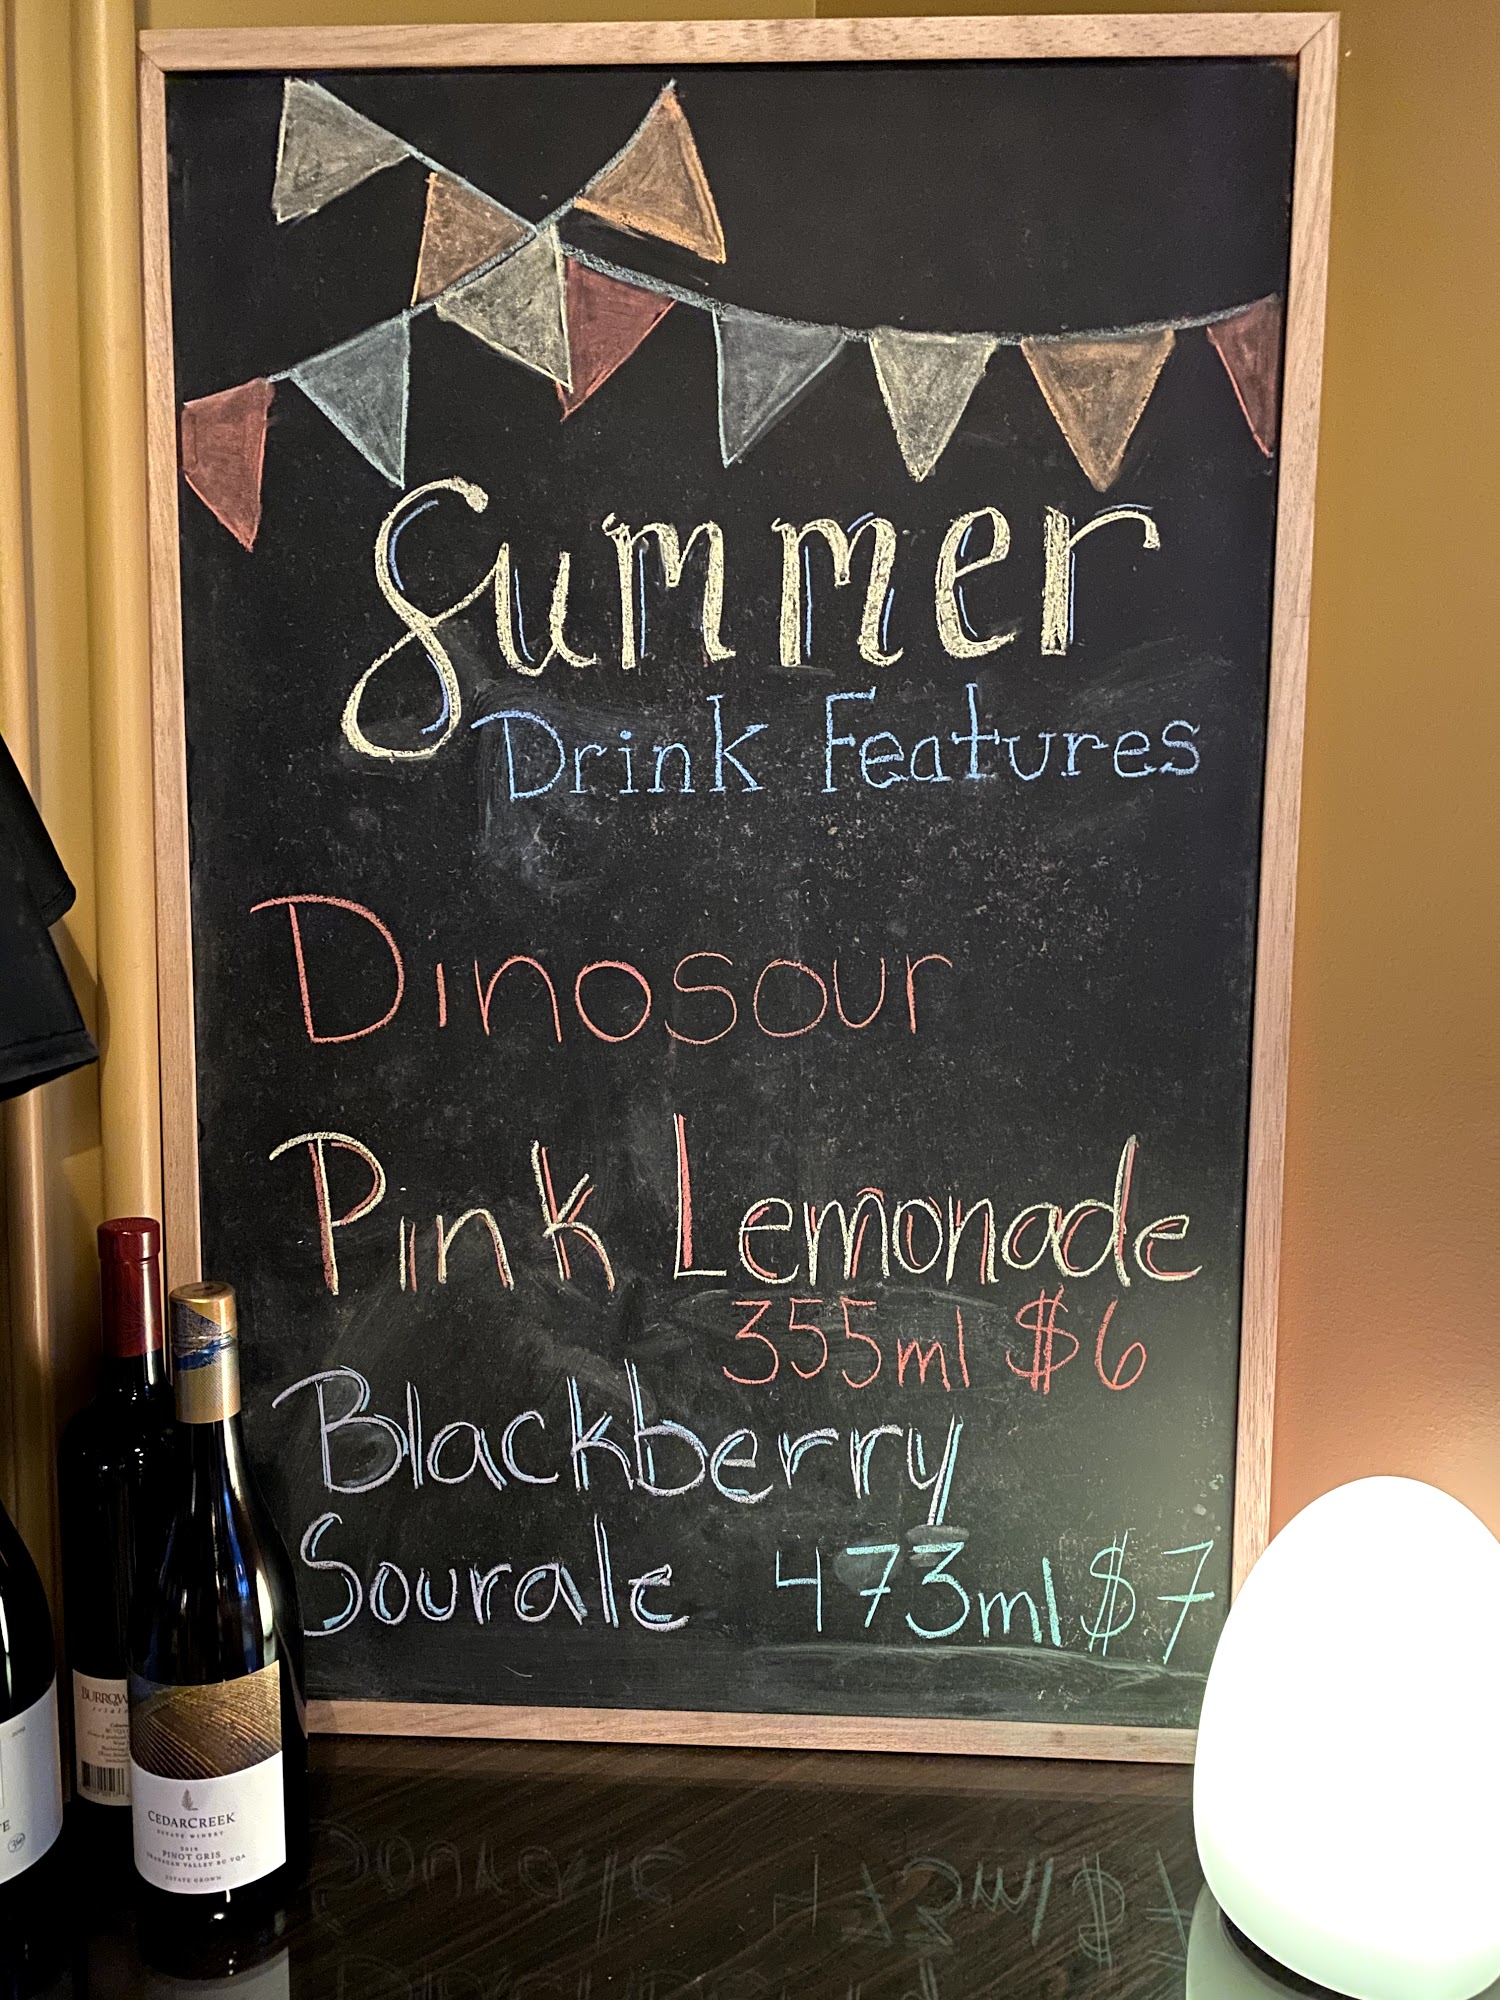 Summer
Drink Features
Dinosour
Pink Lemonade
355ml $6
Blackberry
Sourale 473ml $7
BURROW
CEDARCREEK
ESTATE WINERY
PINOT GRIS
OKANAGAN VALLEY BC VQA
ESTATE GROWN